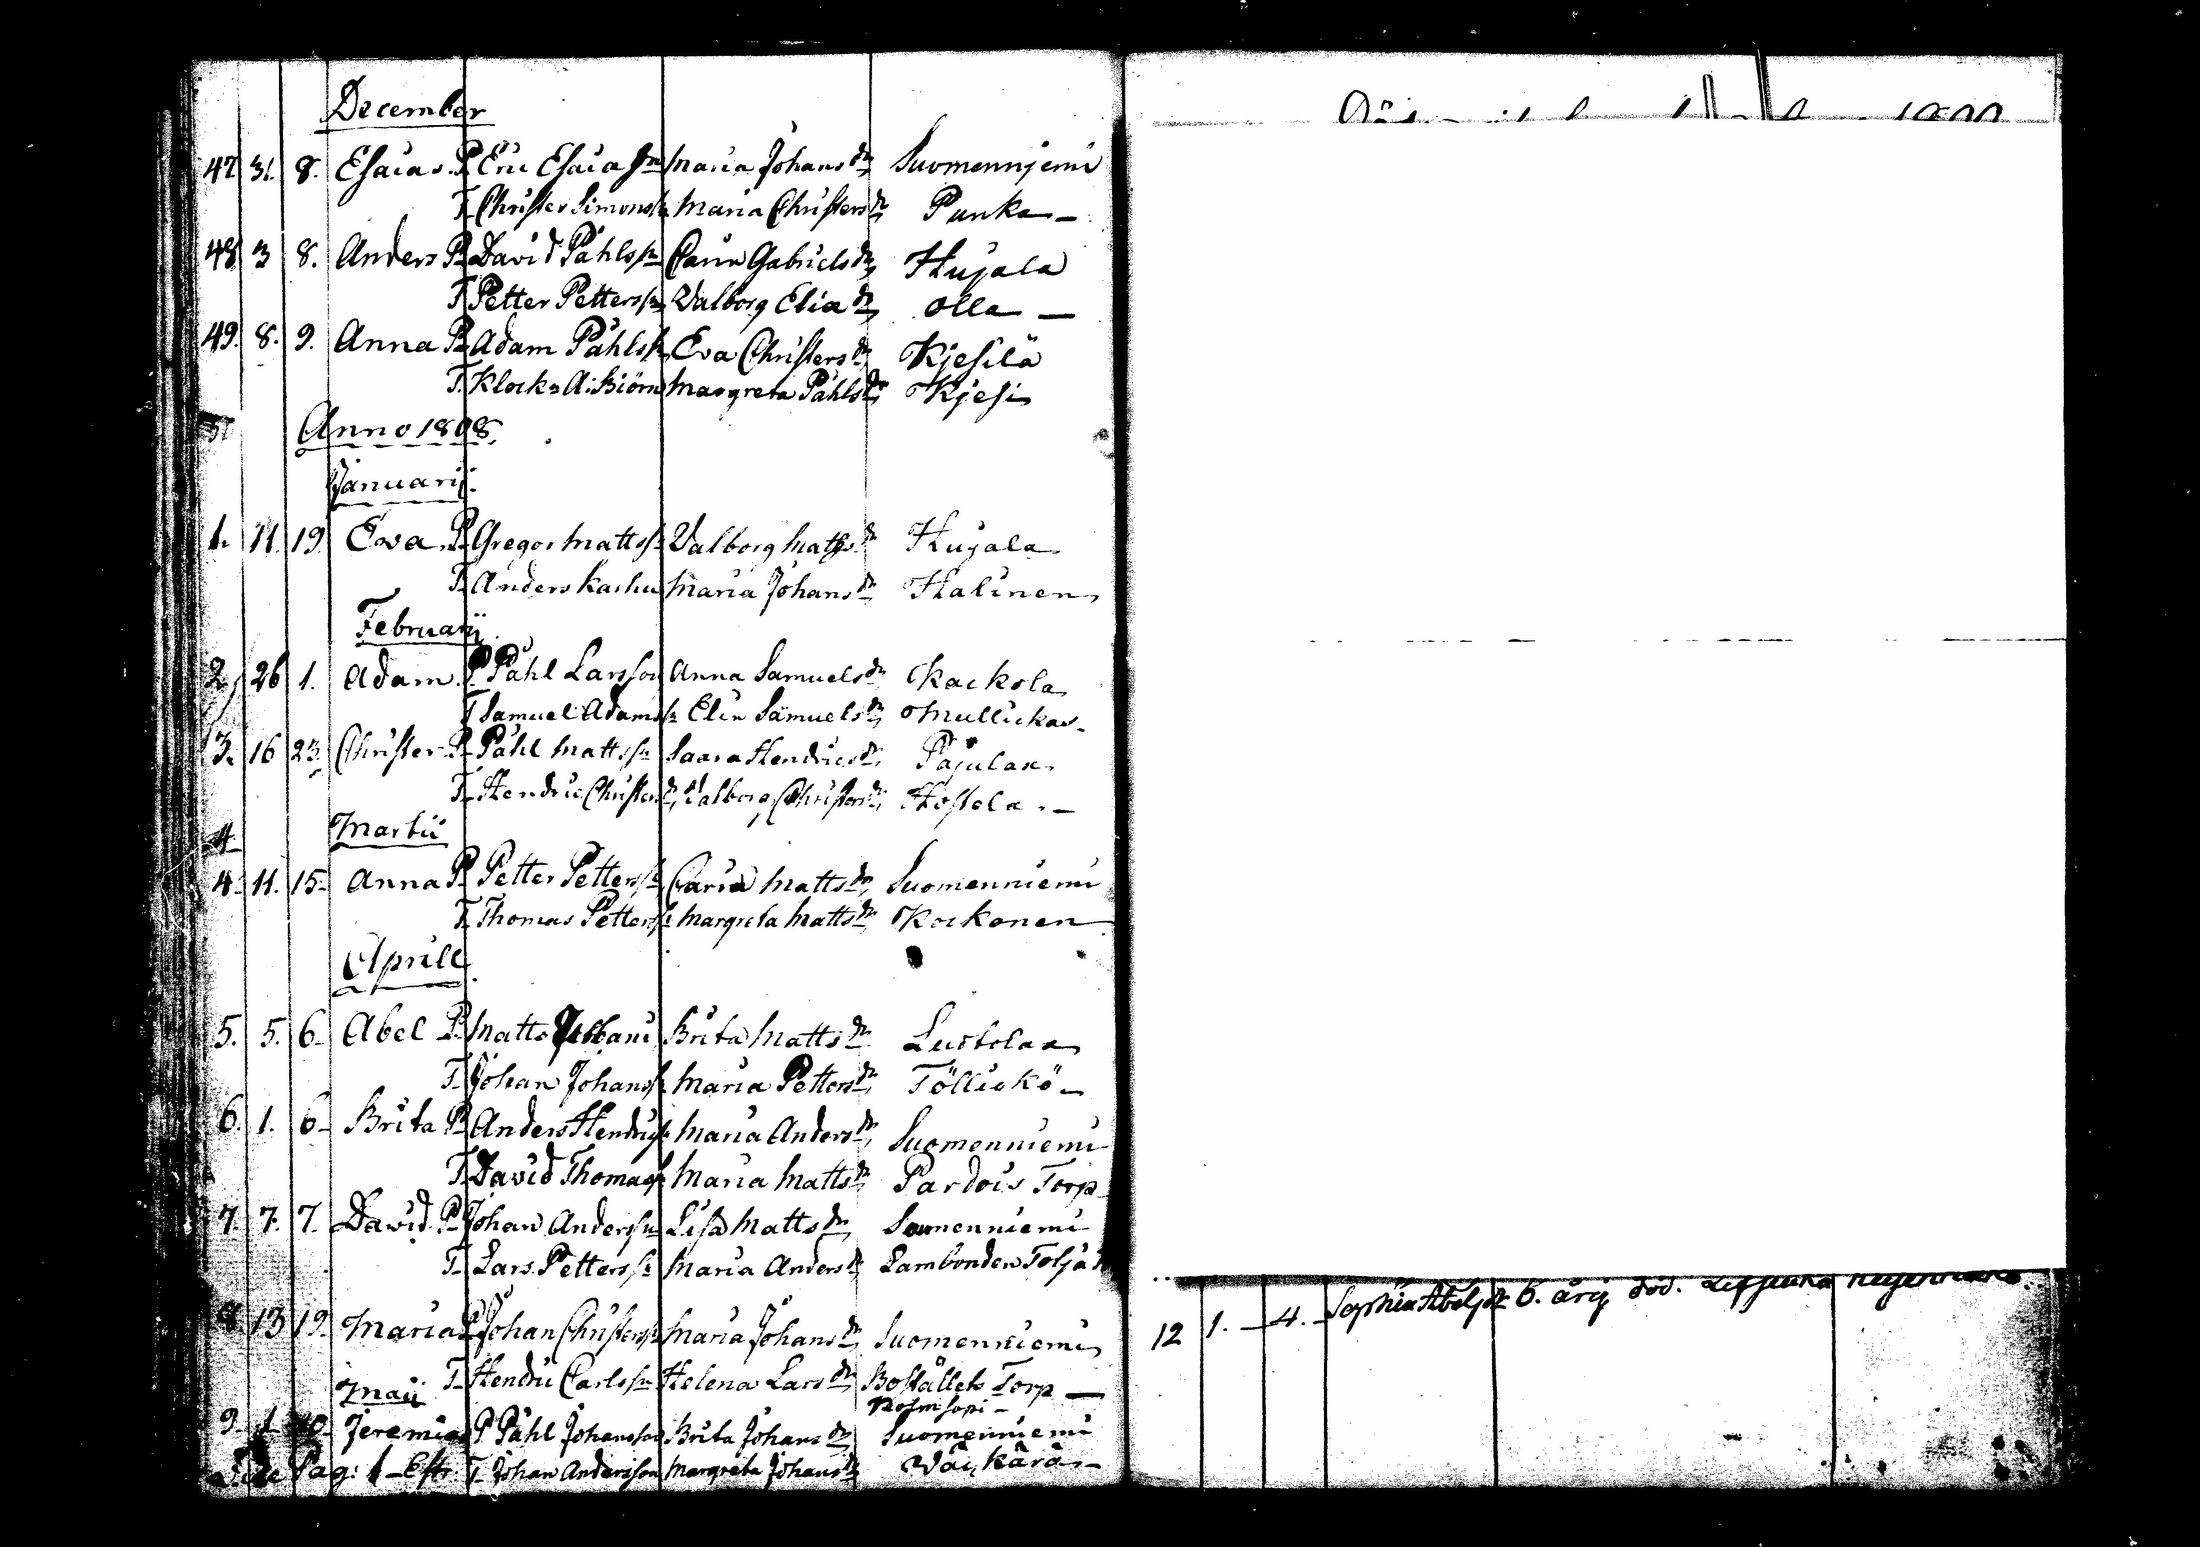 December
47. 31. 8. Esaias. P. Eric Esaiasn Maria Johans dr Suomenniemi
T. Christer Simonss. Maria Christers dr Punka
48. 3 8. Anders P. David Påhlss. Carin Gabriels dr Hujala
T. Petter Petterss. Valborg Elia dr Olla
49. 8. 9. Anna P. Adam Påhlss. Eva Christers dr Kjesilä
T. Klock. A: Biörn Margreta Påhls dr Kjesi
Anno 1808.
Januarij.
1. 11. 19. Eva. P. Gregor Mattss. Valborg Matts dr Hujala
T. Anders Maria Johans dr Halinen
Februarij
2. 26 1. Adam. P. Påhl Larsson Anna Samuels dr Kackola
T. Samuel Adamss. Elin Samuels dr
3. 16 23. Christer P. Påhl Mattss. Saara Hendrics dr Pajula
T. Hendric Christers Valborg Christers dr
4
Martii
4. 11. 15. Anna P. Petter Petterss. Carin Matts dr Suomenniemi
T. Thomas Petterss. Margreta Matts dr Kockonen
Aprill
5. 5. 6. Abel P. Matts Brita Matts dr
T. Johan Johanss. Maria Petters dr Töllickö
6. 1. 6. Brita P. Anders Hendrics. Maria Anders dr Suomenniemi
T. David Thomass. Maria Matts dr Pardois Torp
7. 7. 7. David. P. Johan Anderss. Lisa Matts dr Soumenniemi
T. Lars. Petterss. Maria Anders dr Lambonden Tolja
8. 13 19. Maria P. Johan Christerss. Maria Johans dr Suomenniemi
T. Hendric Carlss. Helena Lars dr Boställets Torp
Maij
9. 1 Jeremias P. Påhl Johansson Brita Johans dr Suomenniemi
Pag: 1 T. Johan Andersson Margreta Johans dr
12 1. 4. Sophia Abels dr 6. årig död.